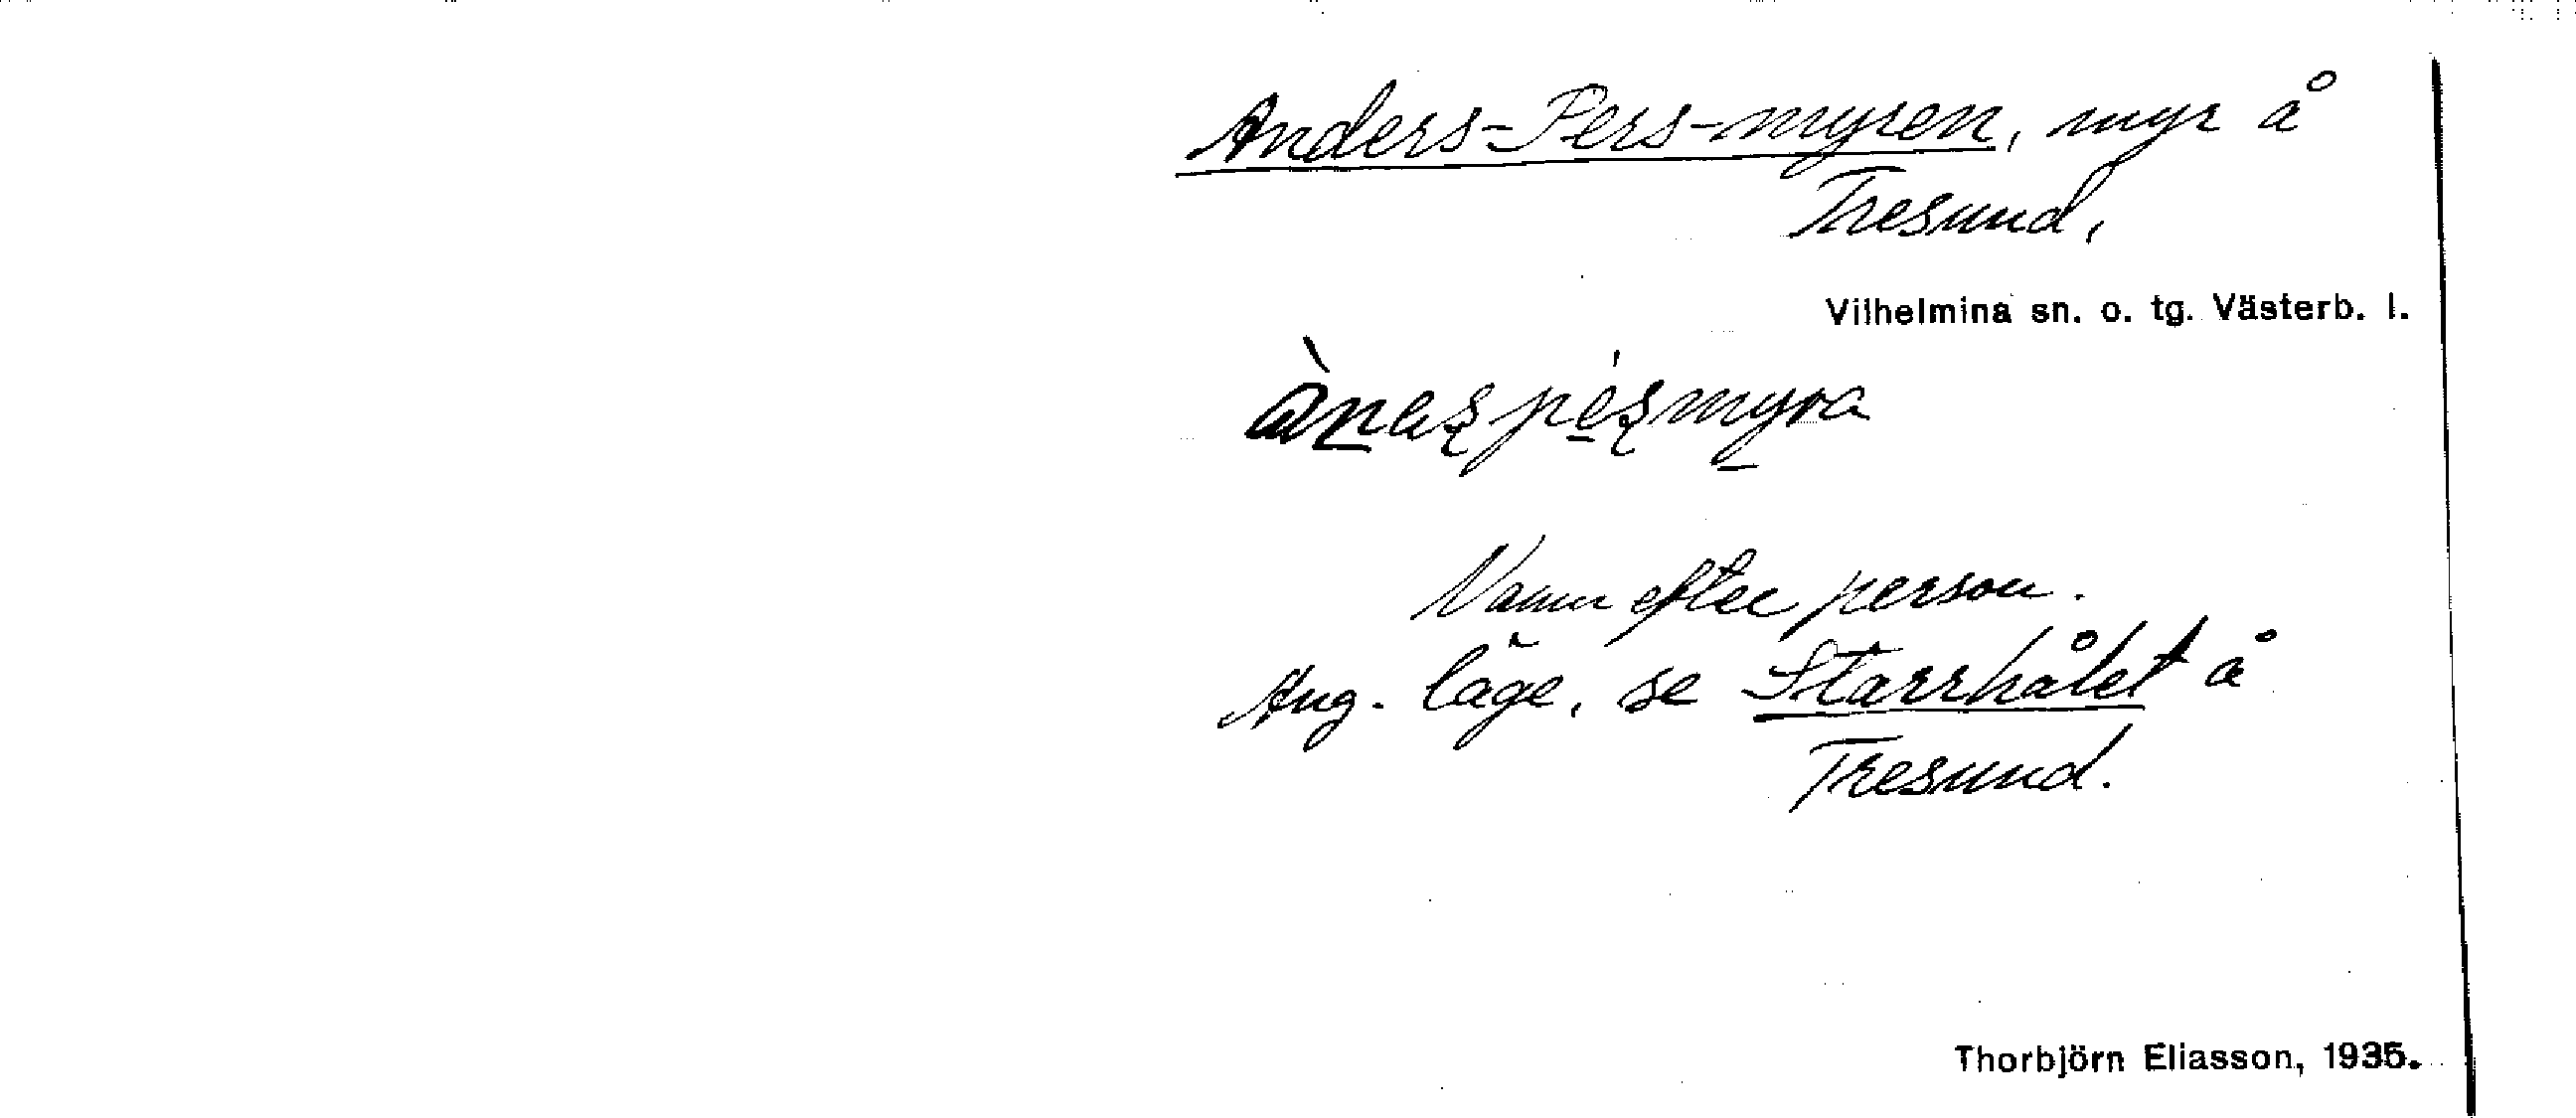 Anders-Pers-myren, myr å
Tresund,
Vilhelmina sn. o. tg. Västerb. l.
Namn efter person.
Ang. läge, se Starrhålet å
Tresund.
Thorbjörn Eliasson, 1935.